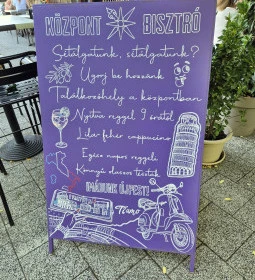 KÖZPONT BISZTRÓ
Sétálgatunk, sétálgatunk?
Ugorj be hozzánk
Találkozóhely a központban
Nyitva reggel 9 órától
Lila-fehér cappuccino
Egész napos reggeli
Könnyű olaszos tészták
IMÁDUNK ÚJPEST!